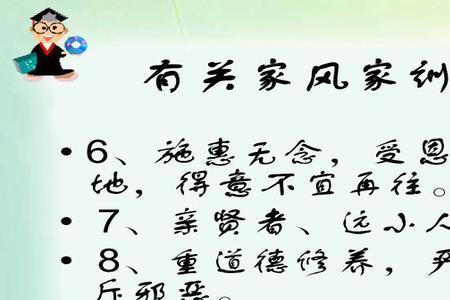 有关家风家训
• 6、施惠无念，受恩
地，得意不宜再往。
• 7、亲贤者、远小人
• 8、重道德修养，严
斥邪恶。